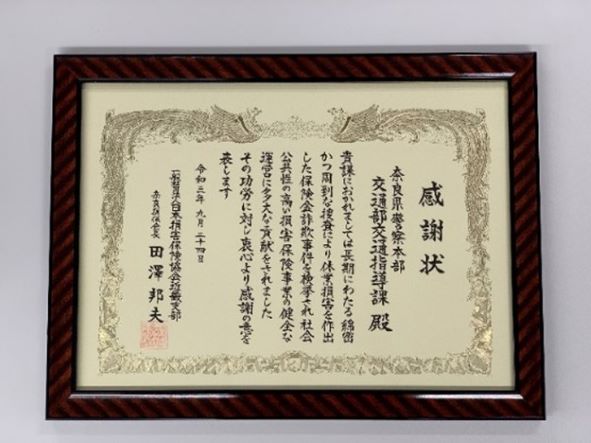 感謝状
奈良県警察本部
交通部交通指導課 殿
貴課におかれましては長期にわたる綿密
かつ周到な捜査により休業損害を作出
した保険金詐欺事件を検挙され社会
公共性の高い損害保険事業の健全な
運営に多大な貢献をされました
その功労に対し衷心より感謝の意を
表します
令和三年 九月 二十四日
一般社団法人日本損害保険協会近畿支部
奈良損保会長 田澤邦夫